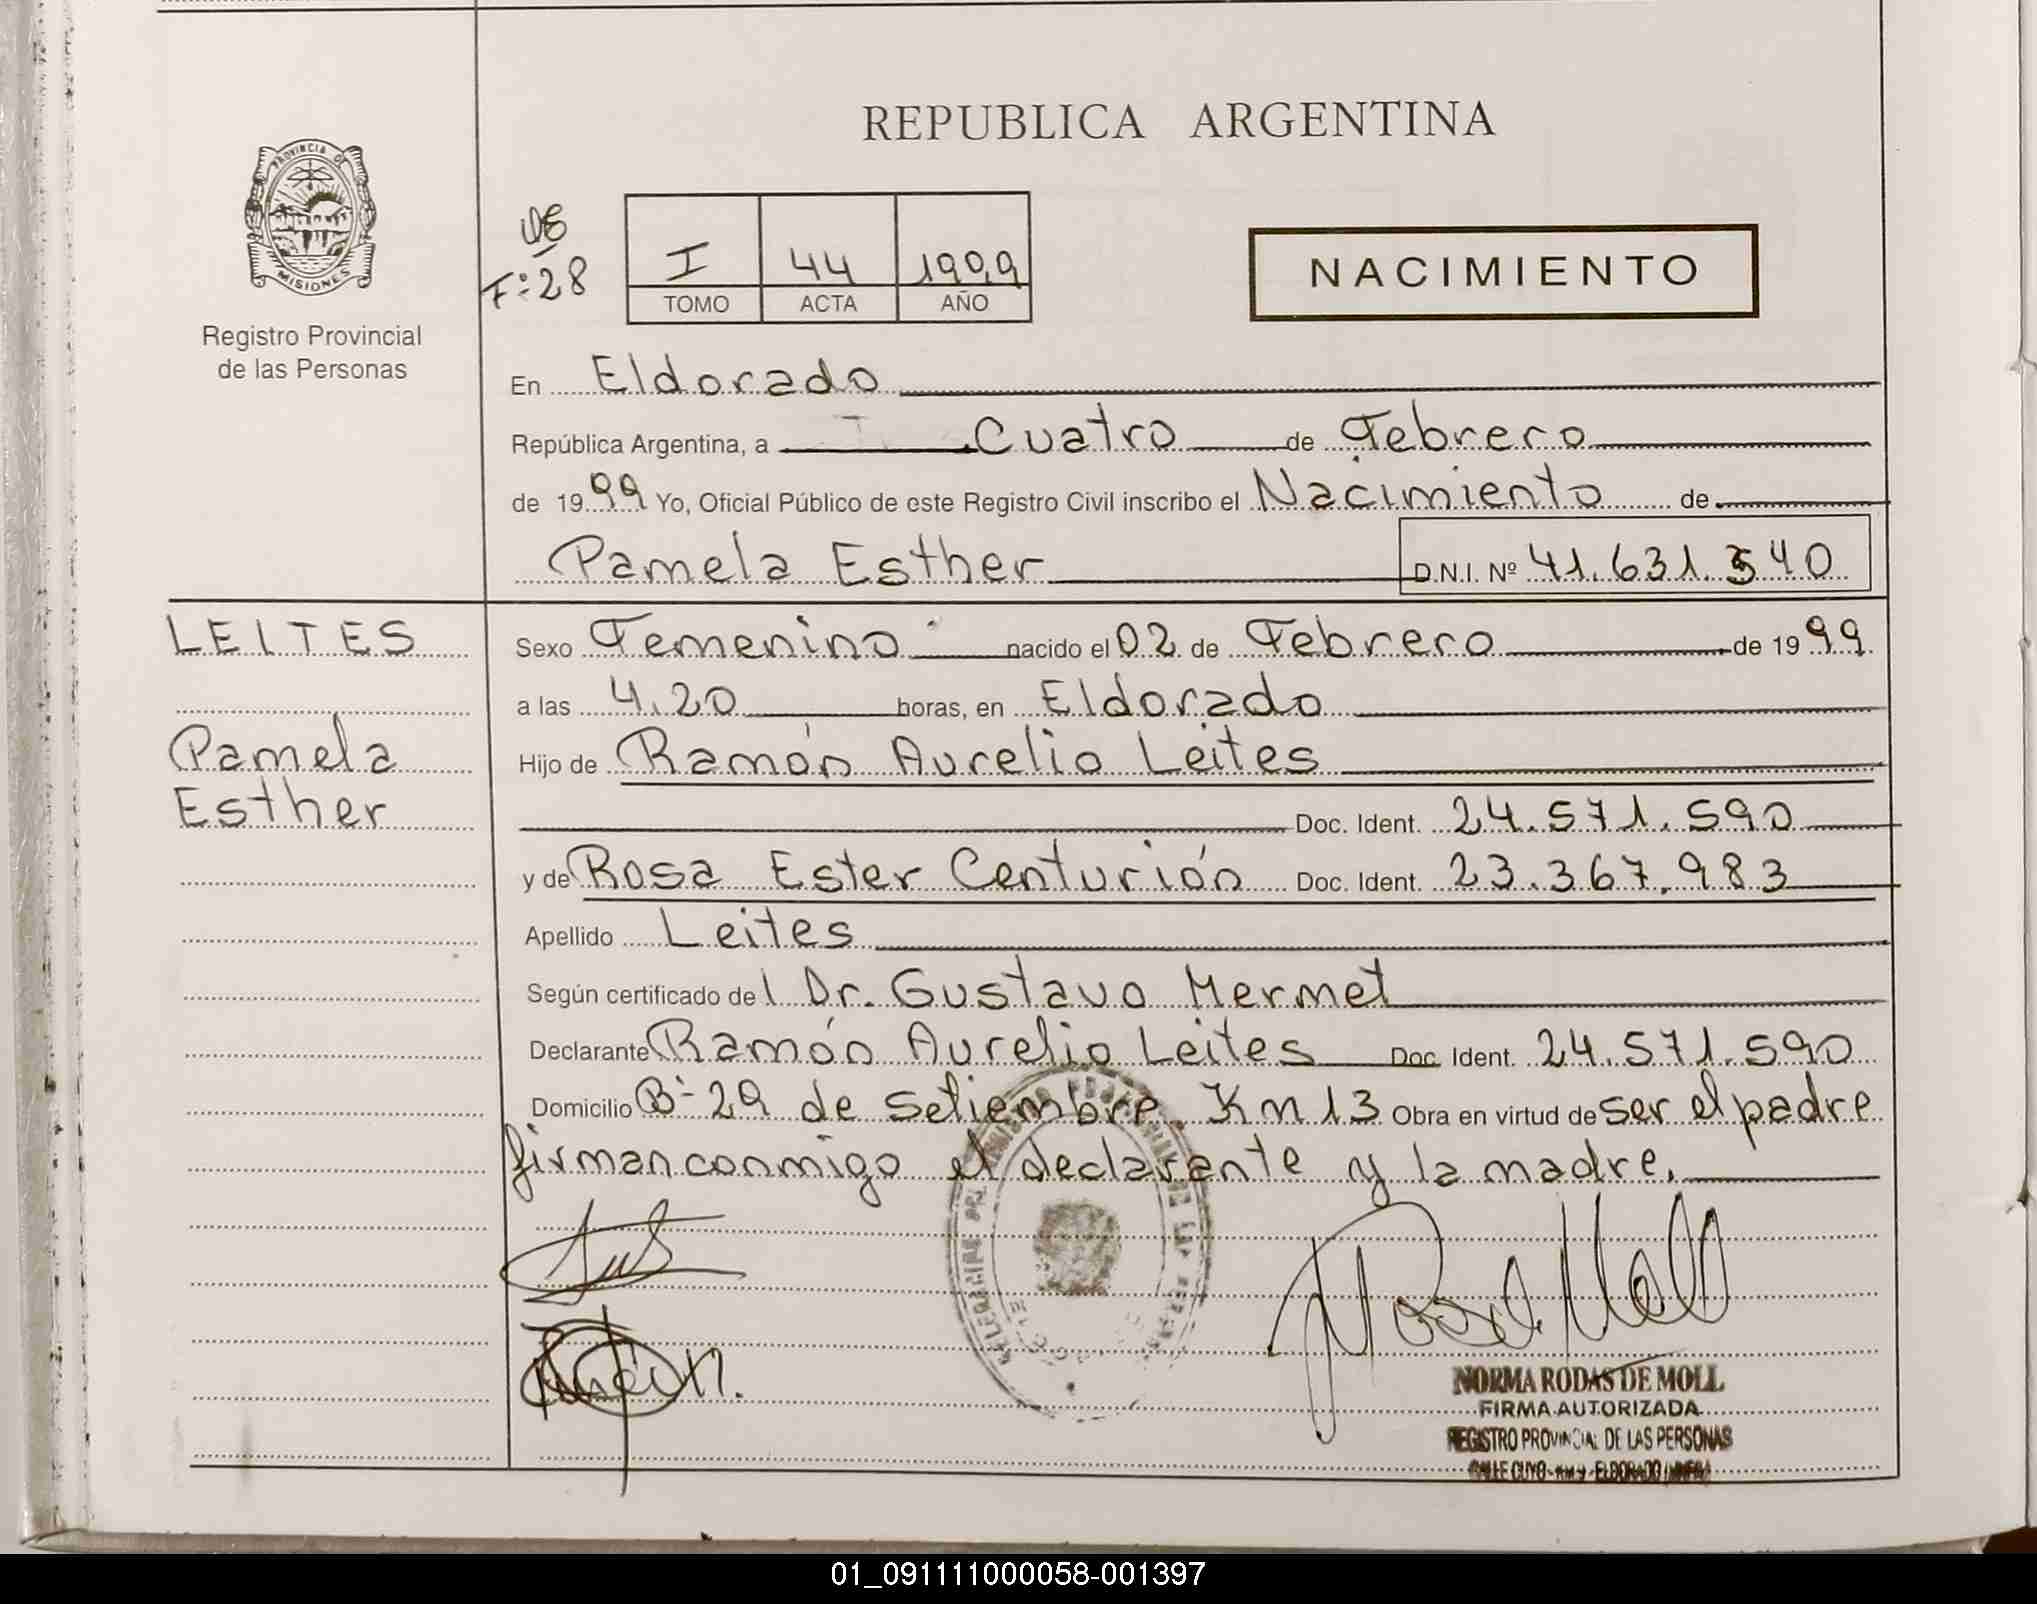 REPUBLICA ARGENTINA
PROVINCIA DE
MISIONES
Registro Provincial
de las Personas
F: 28
I 44 1999
TOMO ACTA AÑO
NACIMIENTO
En Eldorado
República Argentina, a Cuatro de Febrero
de 1999 Yo, Oficial Público de este Registro Civil inscribo el Nacimiento de
Pamela Esther D.N.I. Nº 41.631.540
LEITES
Pamela
Esther
Sexo Femenino nacido el 02 de Febrero de 1999
a las 4.20 horas, en Eldorado
Hijo de Ramón Aurelio Leites
Doc. Ident. 24.571.590
y de Rosa Ester Centurión Doc. Ident. 23.367.983
Apellido Leites
Según certificado del Dr. Gustavo Mermet
Declarante Ramón Aurelio Leites Doc. Ident. 24.571.590
Domicilio Bº 29 de Setiembre Km 13 Obra en virtud de ser el padre
firman conmigo el declarante y la madre.
NORMA RODAS DE MOLL
FIRMA AUTORIZADA
REGISTRO PROVINCIAL DE LAS PERSONAS
CALLE CUYO ELDORADO
01_091111000058-001397